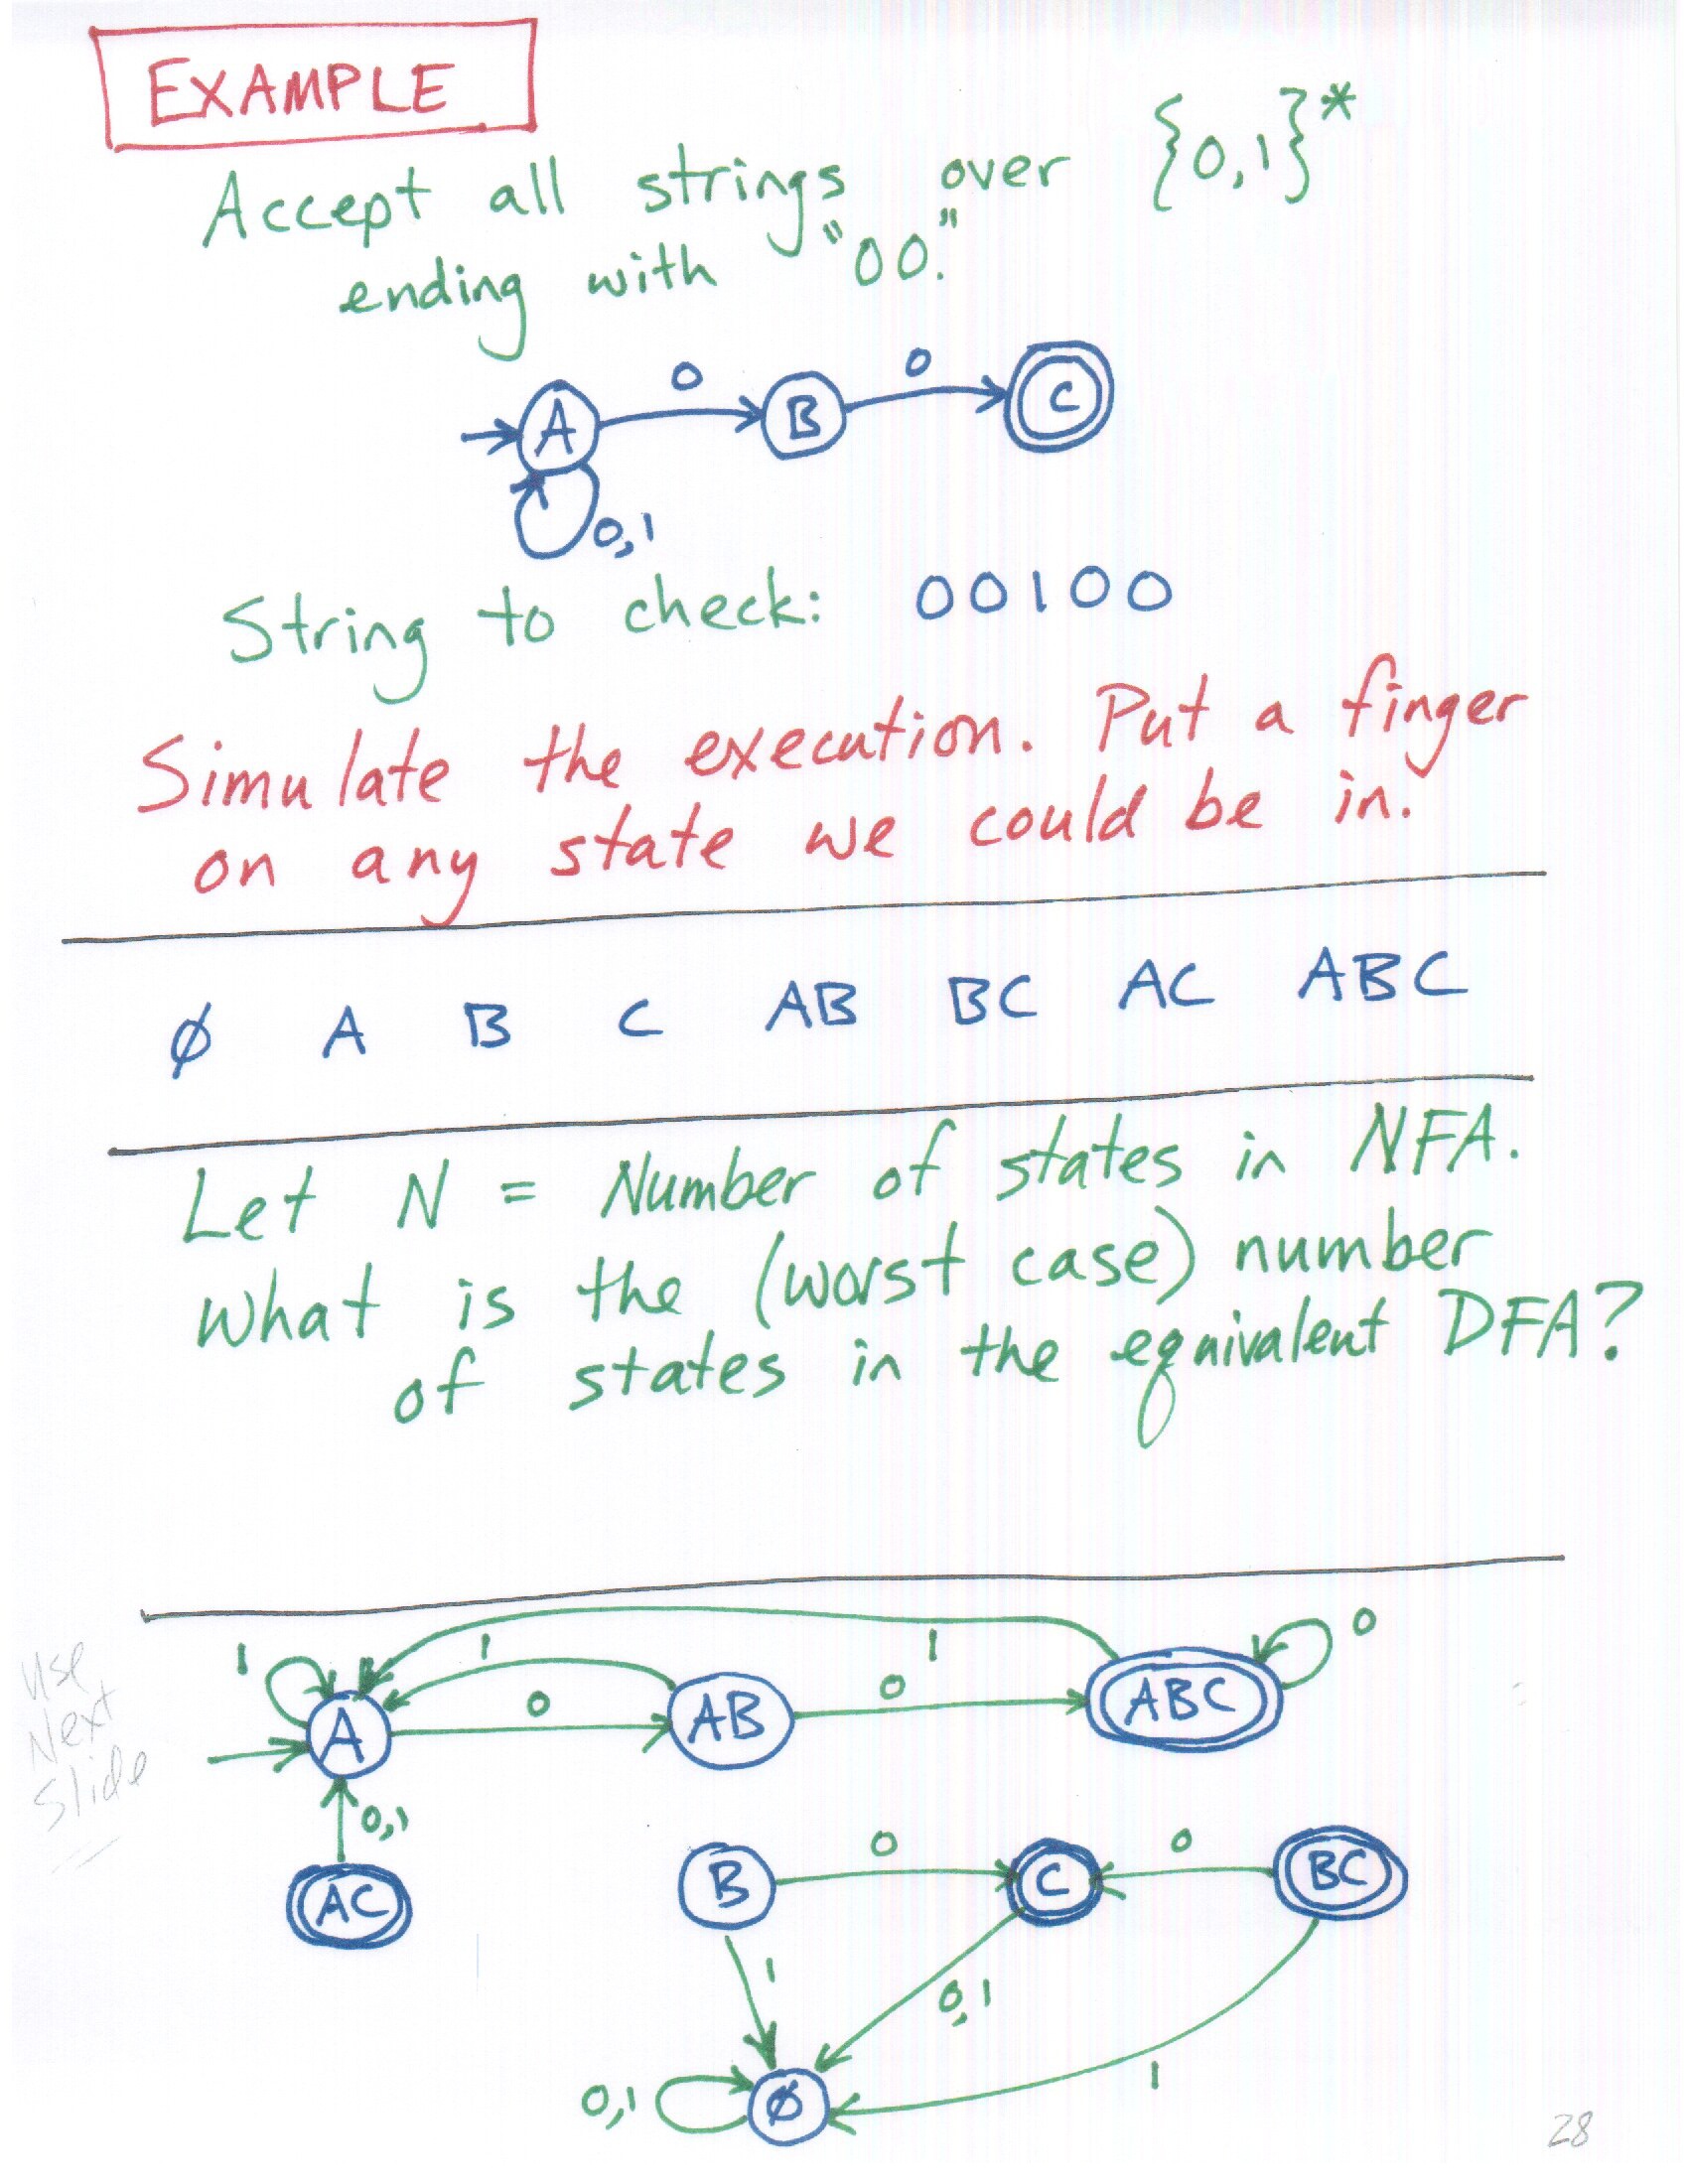 EXAMPLE
Accept all strings over {0,1}*
ending with "00."
0 0
A B C
0,1
String to check: 00100
Simulate the execution. Put a finger
on any state we could be in.
∅ A B C AB BC AC ABC
Let N = Number of states in NFA.
What is the (worst case) number
of states in the equivalent DFA?
Use
Next
Slide
1 1 1 0
0 0
A AB ABC
0,1
0 0
AC B C BC
1 0,1
1
0,1 ∅
28